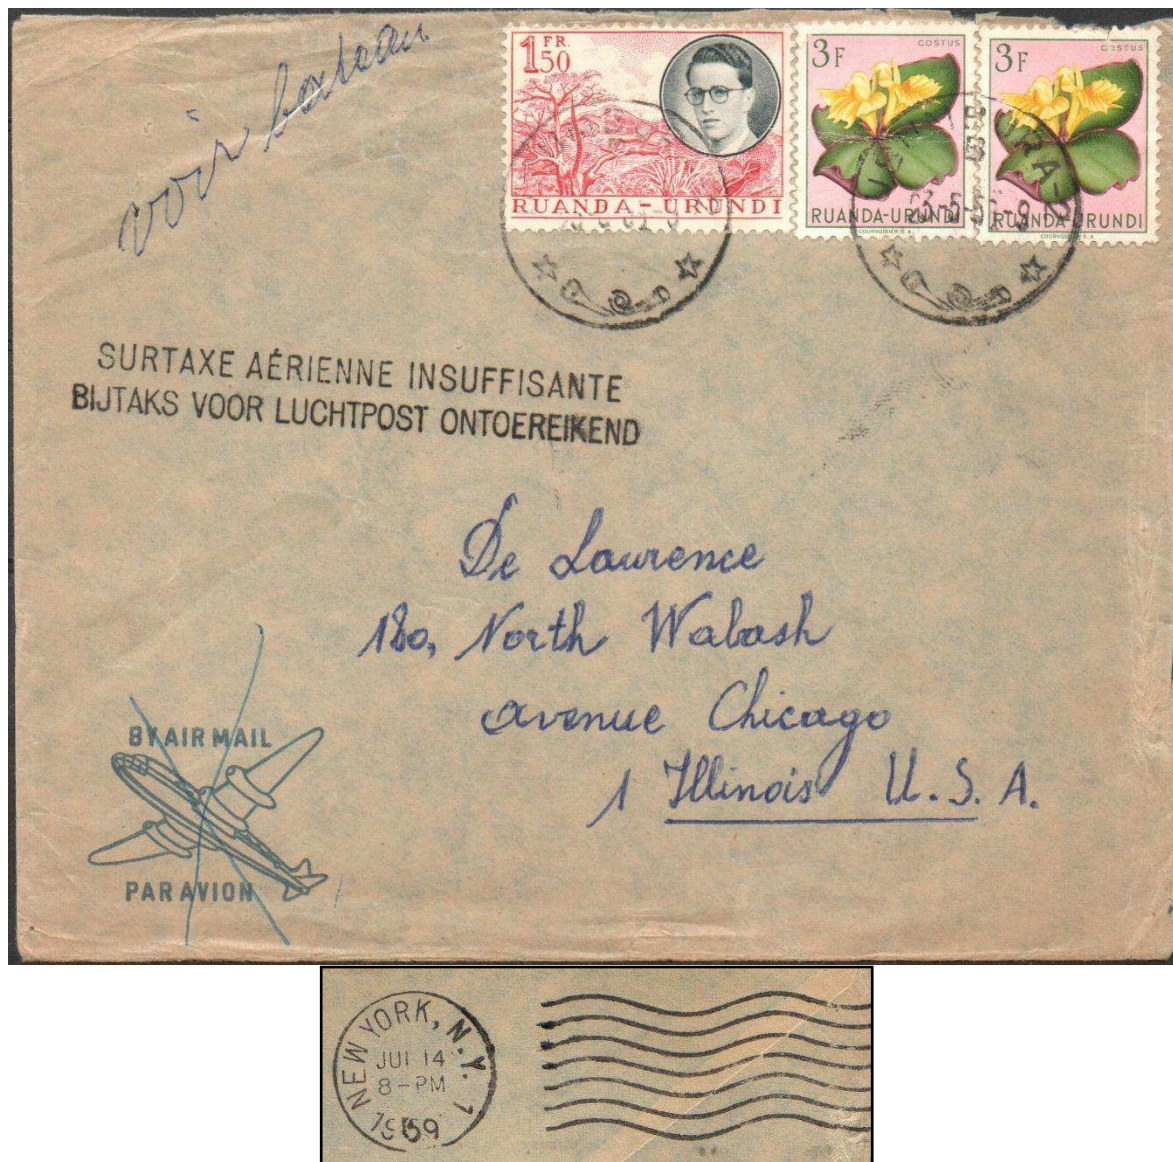 voir bateau
1 FR. 50
RUANDA-URUNDI
COSTUS
3F
RUANDA-URUNDI
COURVOISIER S.A.
COSTUS
3F
RUANDA-URUNDI
COURVOISIER S.A.
SURTAXE AÉRIENNE INSUFFISANTE
BIJTAKS VOOR LUCHTPOST ONTOEREIKEND
De Laurence
180, North Wabash
avenue Chicago
1 Illinois U.S.A.
BY AIR MAIL
PAR AVION
NEW YORK, N.Y. 1
JUL 14
8-PM
1959